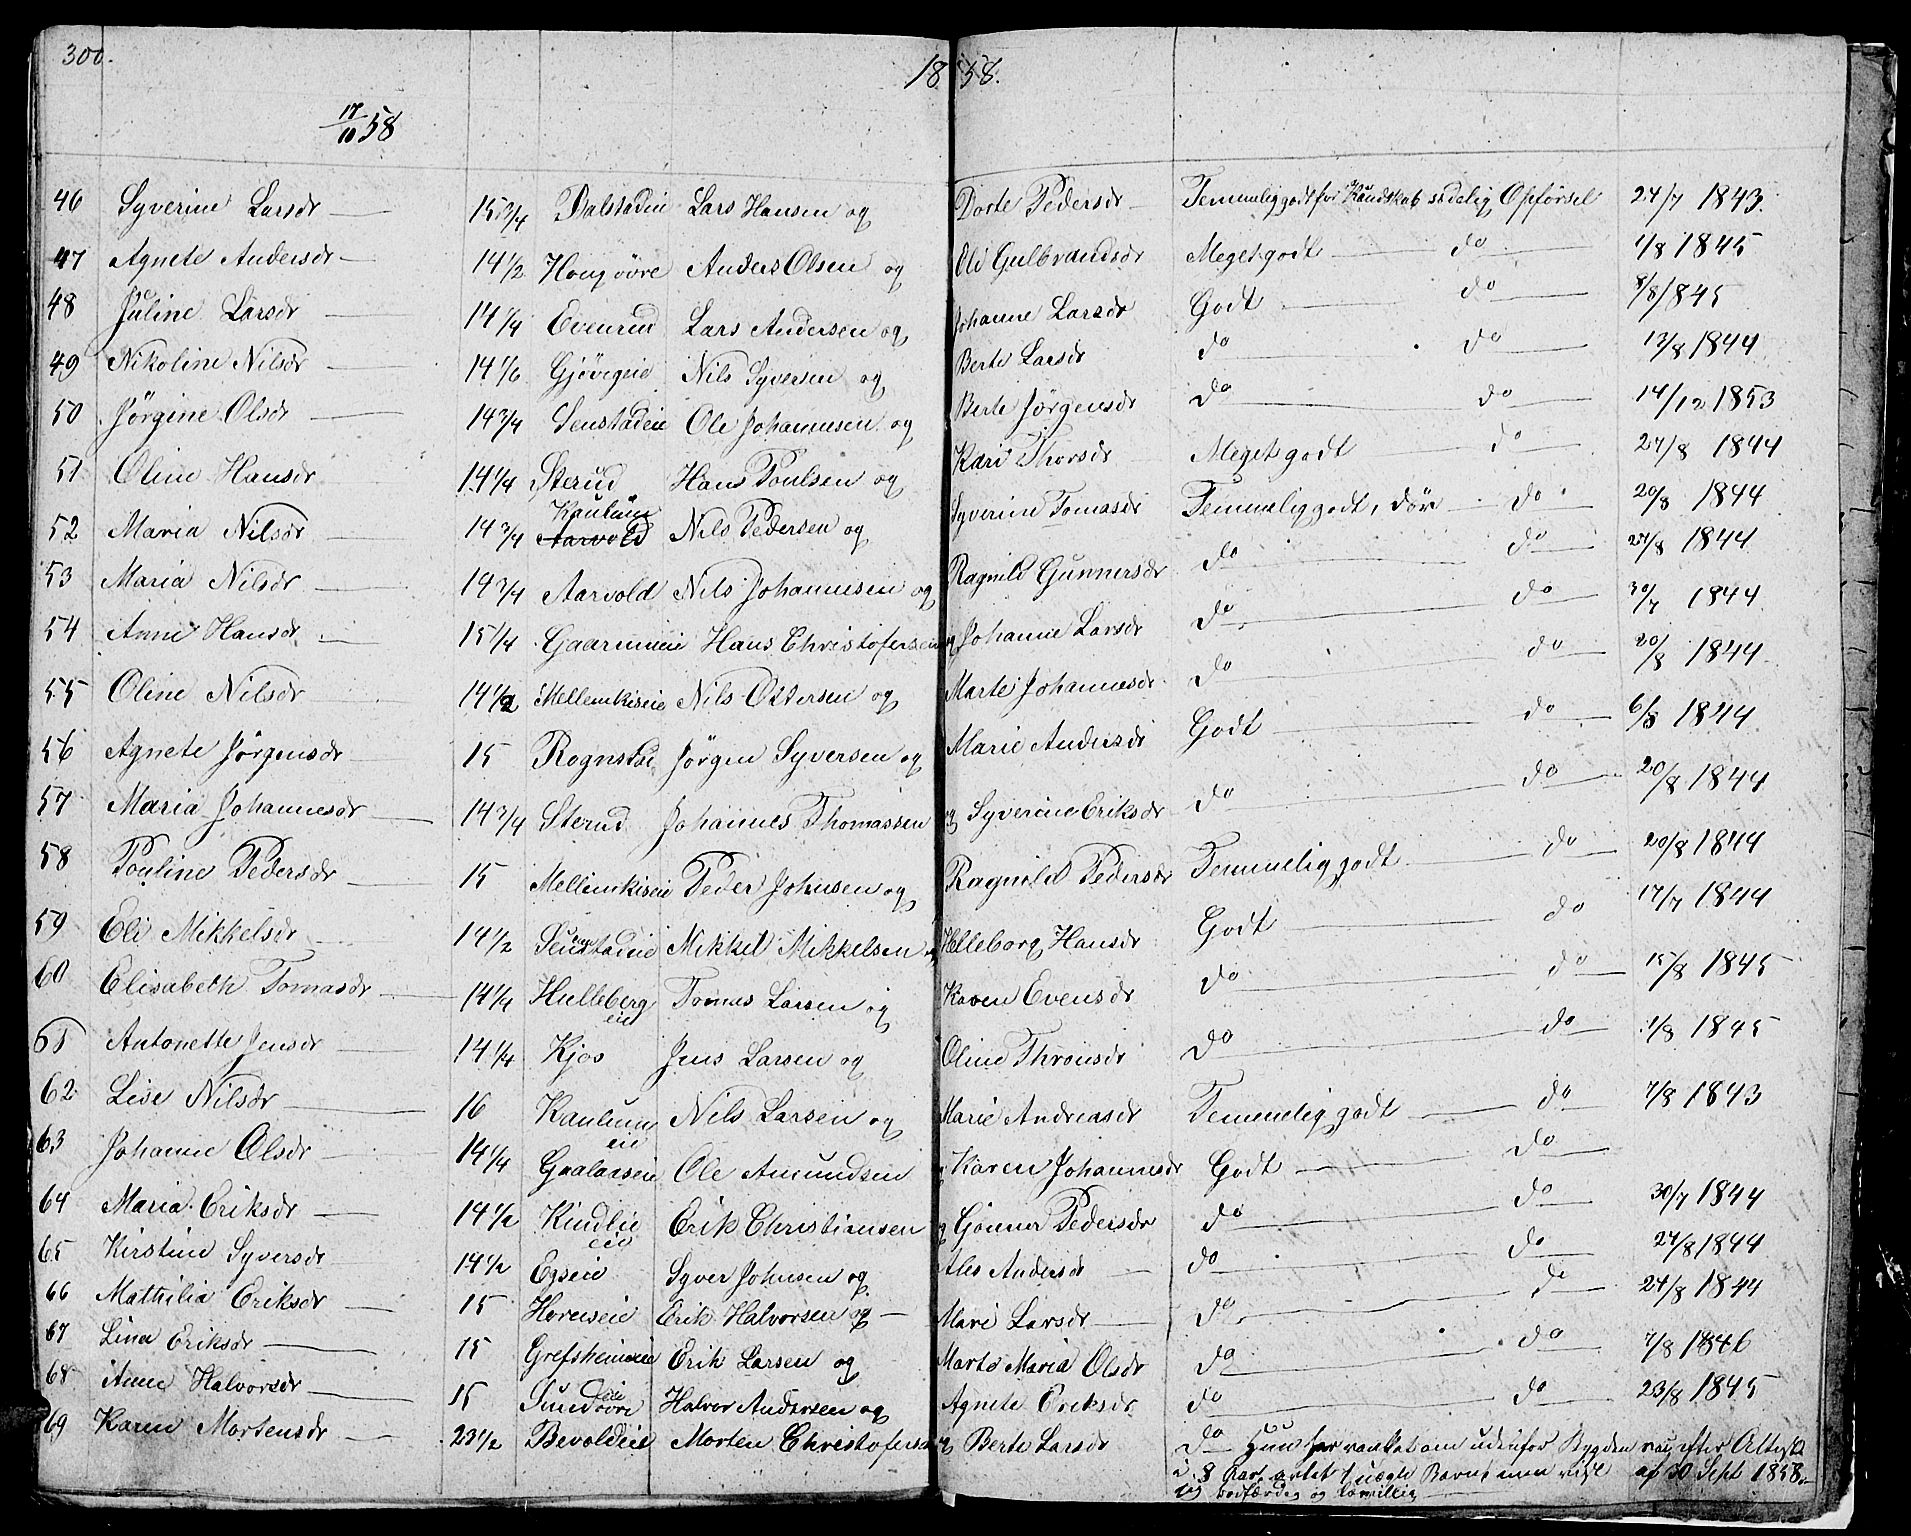 300.
1858.
17/10 58
46 Syverine Larsdr 15 3/4 Dalstadeie Lars Hansen og Dorte Pedersdr Temmelig godt for Kundskab sædelig Opførsel 24/7 1843.
47 Agnete Andersdr 14 1/2 Anders Olsen og Eli Gulbrandsdr Meget godt do 1/8 1845
48 Juline Larsdr 14 1/4 Evenrud Lars Andersen og Johanne Larsdr Godt do 8/8 1845
49 Nikoline Nilsdr 14 1/6 Gjövigeie Nils Syversen og Berte Larsdr do do 12/8 1844
50 Jörgine Olsdr 14 3/4 Senstadeie Ole Johannesen og Berte Jörgensdr do do 14/12 1853
51 Oline Hansdr 14 1/4 Sterud Hans Poulsen og Kari Thorsdr Meget godt do 27/8 1844
52 Maria Nilsdr 14 3/4 Aarvold Nils Pedersen og Syverine Tomasdr Temmelig godt, do 20/8 1844
53 Maria Nilsdr 14 3/4 Aarvold Nils Johannesen og Ragnild Gunnersdr do do 27/8 1844
54 Anne Hansdr 15 1/4 Hans Christofersen og Johanne Larsdr do do 30/7 1844
55 Oline Nilsdr 14 1/2 Mellemkiseie Nils Ottersen og Marte Johannesdr do do 20/8 1844
56 Agnete Jörgensdr 15 Rognstad Jörgen Syversen og Marie Andersdr Godt do 6/8 1844
57 Maria Johannesdr 14 3/4 Sterud Johannes Thomassen og Syverine Eriksdr do do 20/8 1844
58 Pouline Pedersdr 15 Mellemkiseie Peder Johnsen og Ragnild Pedersdr Temmelig godt do 20/8 1844
59 Eli Mikkelsdr 14 1/2 Senstadeie Mikkel Mikkelsen og Helleborg Hansdr Godt do 17/7 1844
60 Elisabeth Tomasdr 14 1/4 Hulleberg eie Tomas Larsen og Karen Evensdr do do 15/8 1845
61 Antonette Jensdr 14 1/4 Kjos Jens Larsen og Oline Thronsdr do do 1/8 1845
62 Lise Nilsdr 16 Kaulum eie Nils Larsen og Marie Andreasdr Temmelig godt do 7/8 1843
63 Johanne Olsdr 14 1/4 Gaalaaseie Ole Amundsen og Karen Johannesdr Godt do
64 Maria Eriksdr 14 1/2 Kindlie eie Erik Christiansen og Gönner Pedersdr do do 30/7 1844
65 Kirstine Syversdr 14 1/2 Egseie Syver Johnsen og Andersdr do do 27/8 1844
66 Mathilia Eriksdr 15 Horneseie Erik Halvorsen og Mari Larsdr do do 27/8 1844
67 Lina Eriksdr 15 Grefsheimeie Erik Larsen og Marte Maria Olsdr do do 7/8 1846
68 Anne Halvorsdr 15 Halvor Andersen og Agnete Eriksdr do do 23/8 1845
69 Karen Mortensdr 23 1/2 Bevoldeie Morten Christofersen og Berte Larsdr do Hun har vanket om udenfor Bygden efter Attest
i 8 Aar, Barn, men af 30 Sept 1858.
og lærvillig